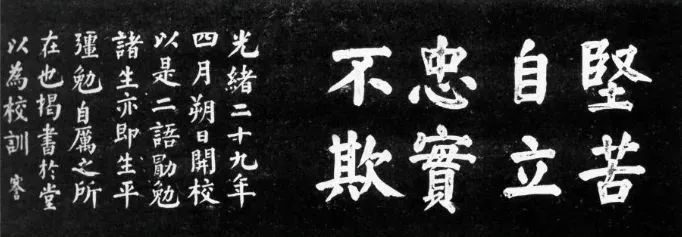 堅苦
自立
忠實
不欺
光緒二十九年
四月朔日開校
以是二語勖勉
諸生亦即生平
彊勉自厲之所
在也揭書於堂
以為校訓 謇